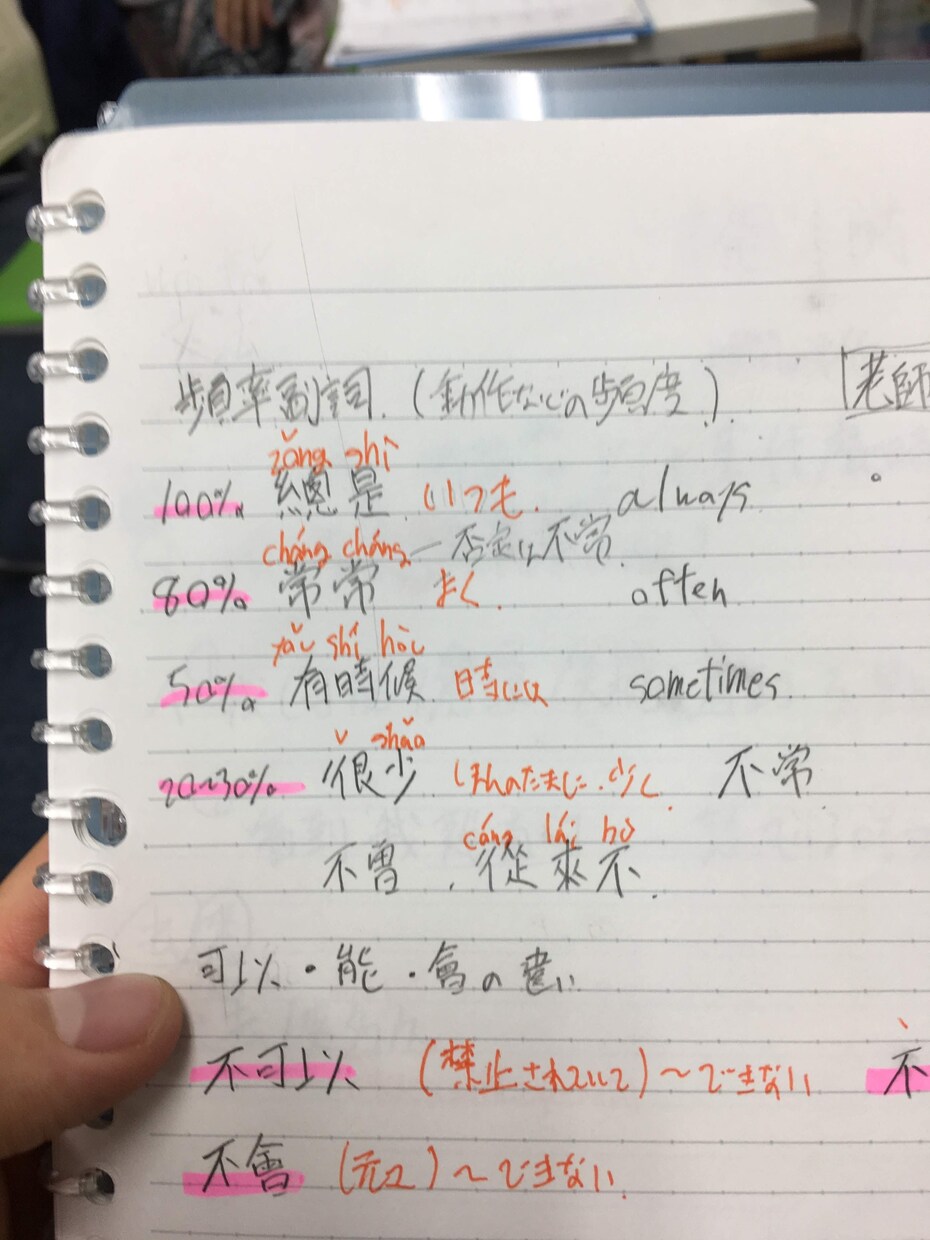 頻率副詞.(動作などの頻度). 老師
zǒng shì
100% 總是 いつも. always.
cháng cháng 一否定は不常
80% 常常 よく. often
yǒu shí hòu
50% 有時候 時には sometimes.
ˇ shǎo
20~30% 很少 ほんのたまに.少し. 不常
cóng lái bù
不曾 . 從來不.
可以・能・會の違い
不可以 (禁止されていて)~できない 不
不會 (元々)~できない.